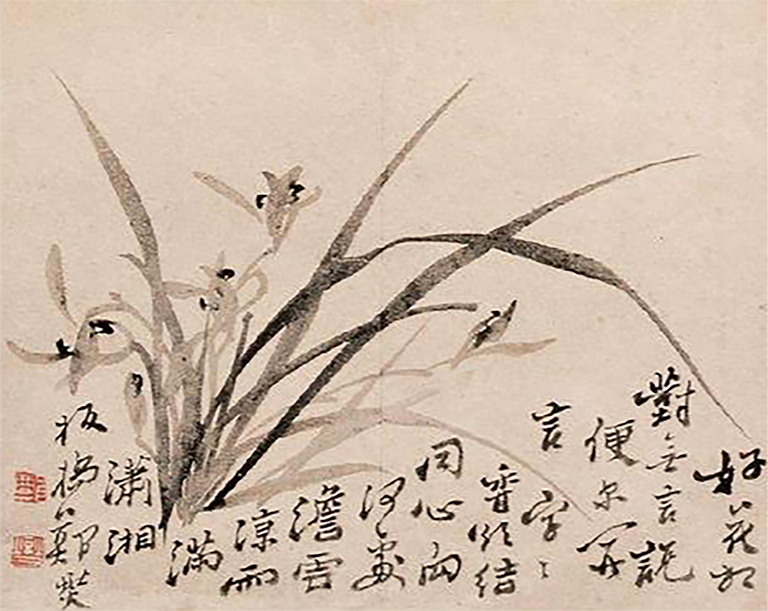 好花相
對無言說
便尔開
言字〻
香須結
同心向
何處
澹雲
涼雨
滿
瀟湘
板橋鄭燮